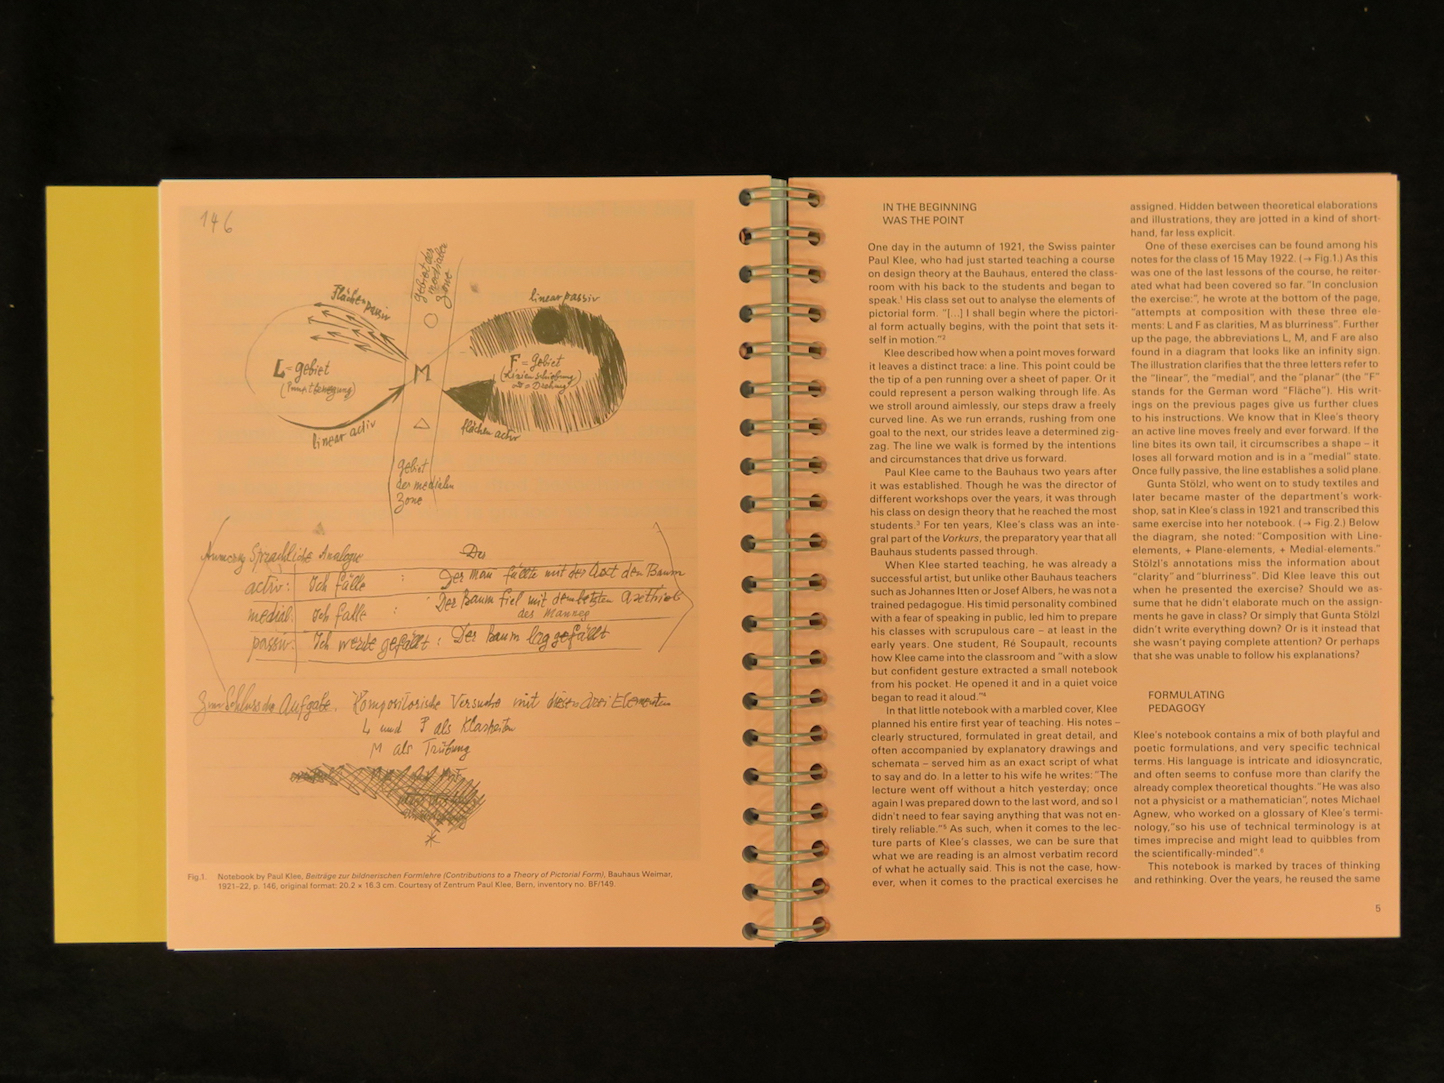 146
gebiet der
medialen
zone
Flächer passiv
linear passiv
L=gebiet
(Punktbewegung)
M
F=gebiet
(Linienschiebung
Drehung)
linear activ
flächen activ
gebiet
der medialen
zone
Sprachliche Analogie
activ: Ich fälle : Der Man fällte mit der Axt den Baum
medial: Ich falle : Der Baum fiel mit dem letzten Axthieb
des Mannes
passiv: Ich werde gefällt: Der Baum lag gefällt
Zum Schluss die Aufgabe. Kompositorische Versuche mit diesen drei Elementen
L und F als Klarheiten
M als Trübung
Fig.1. Notebook by Paul Klee, Beiträge zur bildnerischen Formlehre (Contributions to a Theory of Pictorial Form), Bauhaus Weimar,
1921–22, p. 146, original format: 20.2 × 16.3 cm. Courtesy of Zentrum Paul Klee, Bern, inventory no. BF/149.
IN THE BEGINNING
WAS THE POINT
One day in the autumn of 1921, the Swiss painter
Paul Klee, who had just started teaching a course
on design theory at the Bauhaus, entered the class-
room with his back to the students and began to
speak.¹ His class set out to analyse the elements of
pictorial form. "[…] I shall begin where the pictori-
al form actually begins, with the point that sets it-
self in motion."²
Klee described how when a point moves forward
it leaves a distinct trace: a line. This point could be
the tip of a pen running over a sheet of paper. Or it
could represent a person walking through life. As
we stroll around aimlessly, our steps draw a freely
curved line. As we run errands, rushing from one
goal to the next, our strides leave a determined zig-
zag. The line we walk is formed by the intentions
and circumstances that drive us forward.
Paul Klee came to the Bauhaus two years after
it was established. Though he was the director of
different workshops over the years, it was through
his class on design theory that he reached the most
students.³ For ten years, Klee's class was an inte-
gral part of the Vorkurs, the preparatory year that all
Bauhaus students passed through.
When Klee started teaching, he was already a
successful artist, but unlike other Bauhaus teachers
such as Johannes Itten or Josef Albers, he was not a
trained pedagogue. His timid personality combined
with a fear of speaking in public, led him to prepare
his classes with scrupulous care – at least in the
early years. One student, Ré Soupault, recounts
how Klee came into the classroom and "with a slow
but confident gesture extracted a small notebook
from his pocket. He opened it and in a quiet voice
began to read it aloud."⁴
In that little notebook with a marbled cover, Klee
planned his entire first year of teaching. His notes –
clearly structured, formulated in great detail, and
often accompanied by explanatory drawings and
schemata – served him as an exact script of what
to say and do. In a letter to his wife he writes: "The
lecture went off without a hitch yesterday; once
again I was prepared down to the last word, and so I
didn't need to fear saying anything that was not en-
tirely reliable."⁵ As such, when it comes to the lec-
ture parts of Klee's classes, we can be sure that
what we are reading is an almost verbatim record
of what he actually said. This is not the case, how-
ever, when it comes to the practical exercises he
assigned. Hidden between theoretical elaborations
and illustrations, they are jotted in a kind of short-
hand, far less explicit.
One of these exercises can be found among his
notes for the class of 15 May 1922. (→ Fig.1.) As this
was one of the last lessons of the course, he reiter-
ated what had been covered so far. "In conclusion
the exercise:", he wrote at the bottom of the page,
"attempts at composition with these three ele-
ments: L and F as clarities, M as blurriness". Further
up the page, the abbreviations L, M, and F are also
found in a diagram that looks like an infinity sign.
The illustration clarifies that the three letters refer to
the "linear", the "medial", and the "planar" (the "F"
stands for the German word "Fläche"). His writ-
ings on the previous pages give us further clues
to his instructions. We know that in Klee's theory
an active line moves freely and ever forward. If the
line bites its own tail, it circumscribes a shape – it
loses all forward motion and is in a "medial" state.
Once fully passive, the line establishes a solid plane.
Gunta Stölzl, who went on to study textiles and
later became master of the department's work-
shop, sat in Klee's class in 1921 and transcribed this
same exercise into her notebook. (→ Fig.2.) Below
the diagram, she noted: "Composition with Line-
elements, + Plane-elements, + Medial-elements."
Stölzl's annotations miss the information about
"clarity" and "blurriness". Did Klee leave this out
when he presented the exercise? Should we as-
sume that he didn't elaborate much on the assign-
ments he gave in class? Or simply that Gunta Stölzl
didn't write everything down? Or is it instead that
she wasn't paying complete attention? Or perhaps
that she was unable to follow his explanations?
FORMULATING
PEDAGOGY
Klee's notebook contains a mix of both playful and
poetic formulations, and very specific technical
terms. His language is intricate and idiosyncratic,
and often seems to confuse more than clarify the
already complex theoretical thoughts. "He was also
not a physicist or a mathematician", notes Michael
Agnew, who worked on a glossary of Klee's termi-
nology, "so his use of technical terminology is at
times imprecise and might lead to quibbles from
the scientifically-minded".⁶
This notebook is marked by traces of thinking
and rethinking. Over the years, he reused the same
5